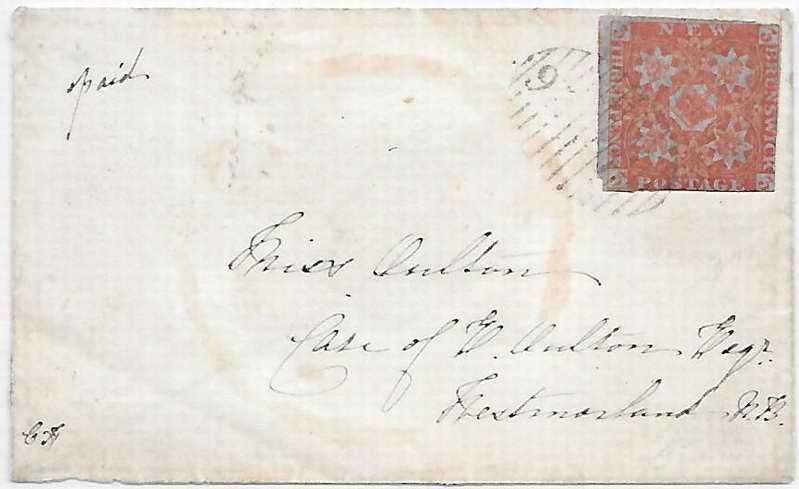 paid
NEW
BRUNSWICK
POSTAGE
3
3
9
Miss Oulton
Care of W. Oulton Esqr.
Westmorland N.B.